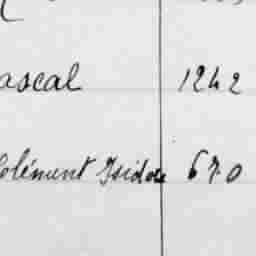 ascal 1242
Clément Isidore 670